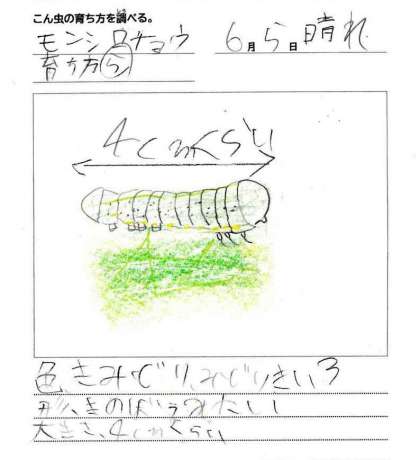 こん虫の育ち方を調べる。
モンシロチョウ 6月5日晴れ
育ち方5
4cmくらい
色、きみどり、みどりきいろ
形、きのぼうみたい
大きさ、4cmくらい